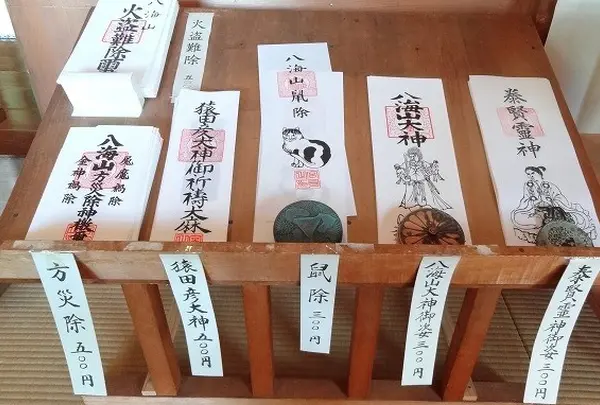 八海山
火盗難除霊
火盗難除
五
八海山
方災除神璽
鬼魔禍除
金神禍除
猿田彦大神御祈祷太麻
八海山
鼠除
八海山大神
泰賢霊神
方災除 五〇〇円
猿田彦大神 五〇〇円
鼠除 三〇〇円
八海山大神御姿 三〇〇円
泰賢霊神御姿 三〇〇円